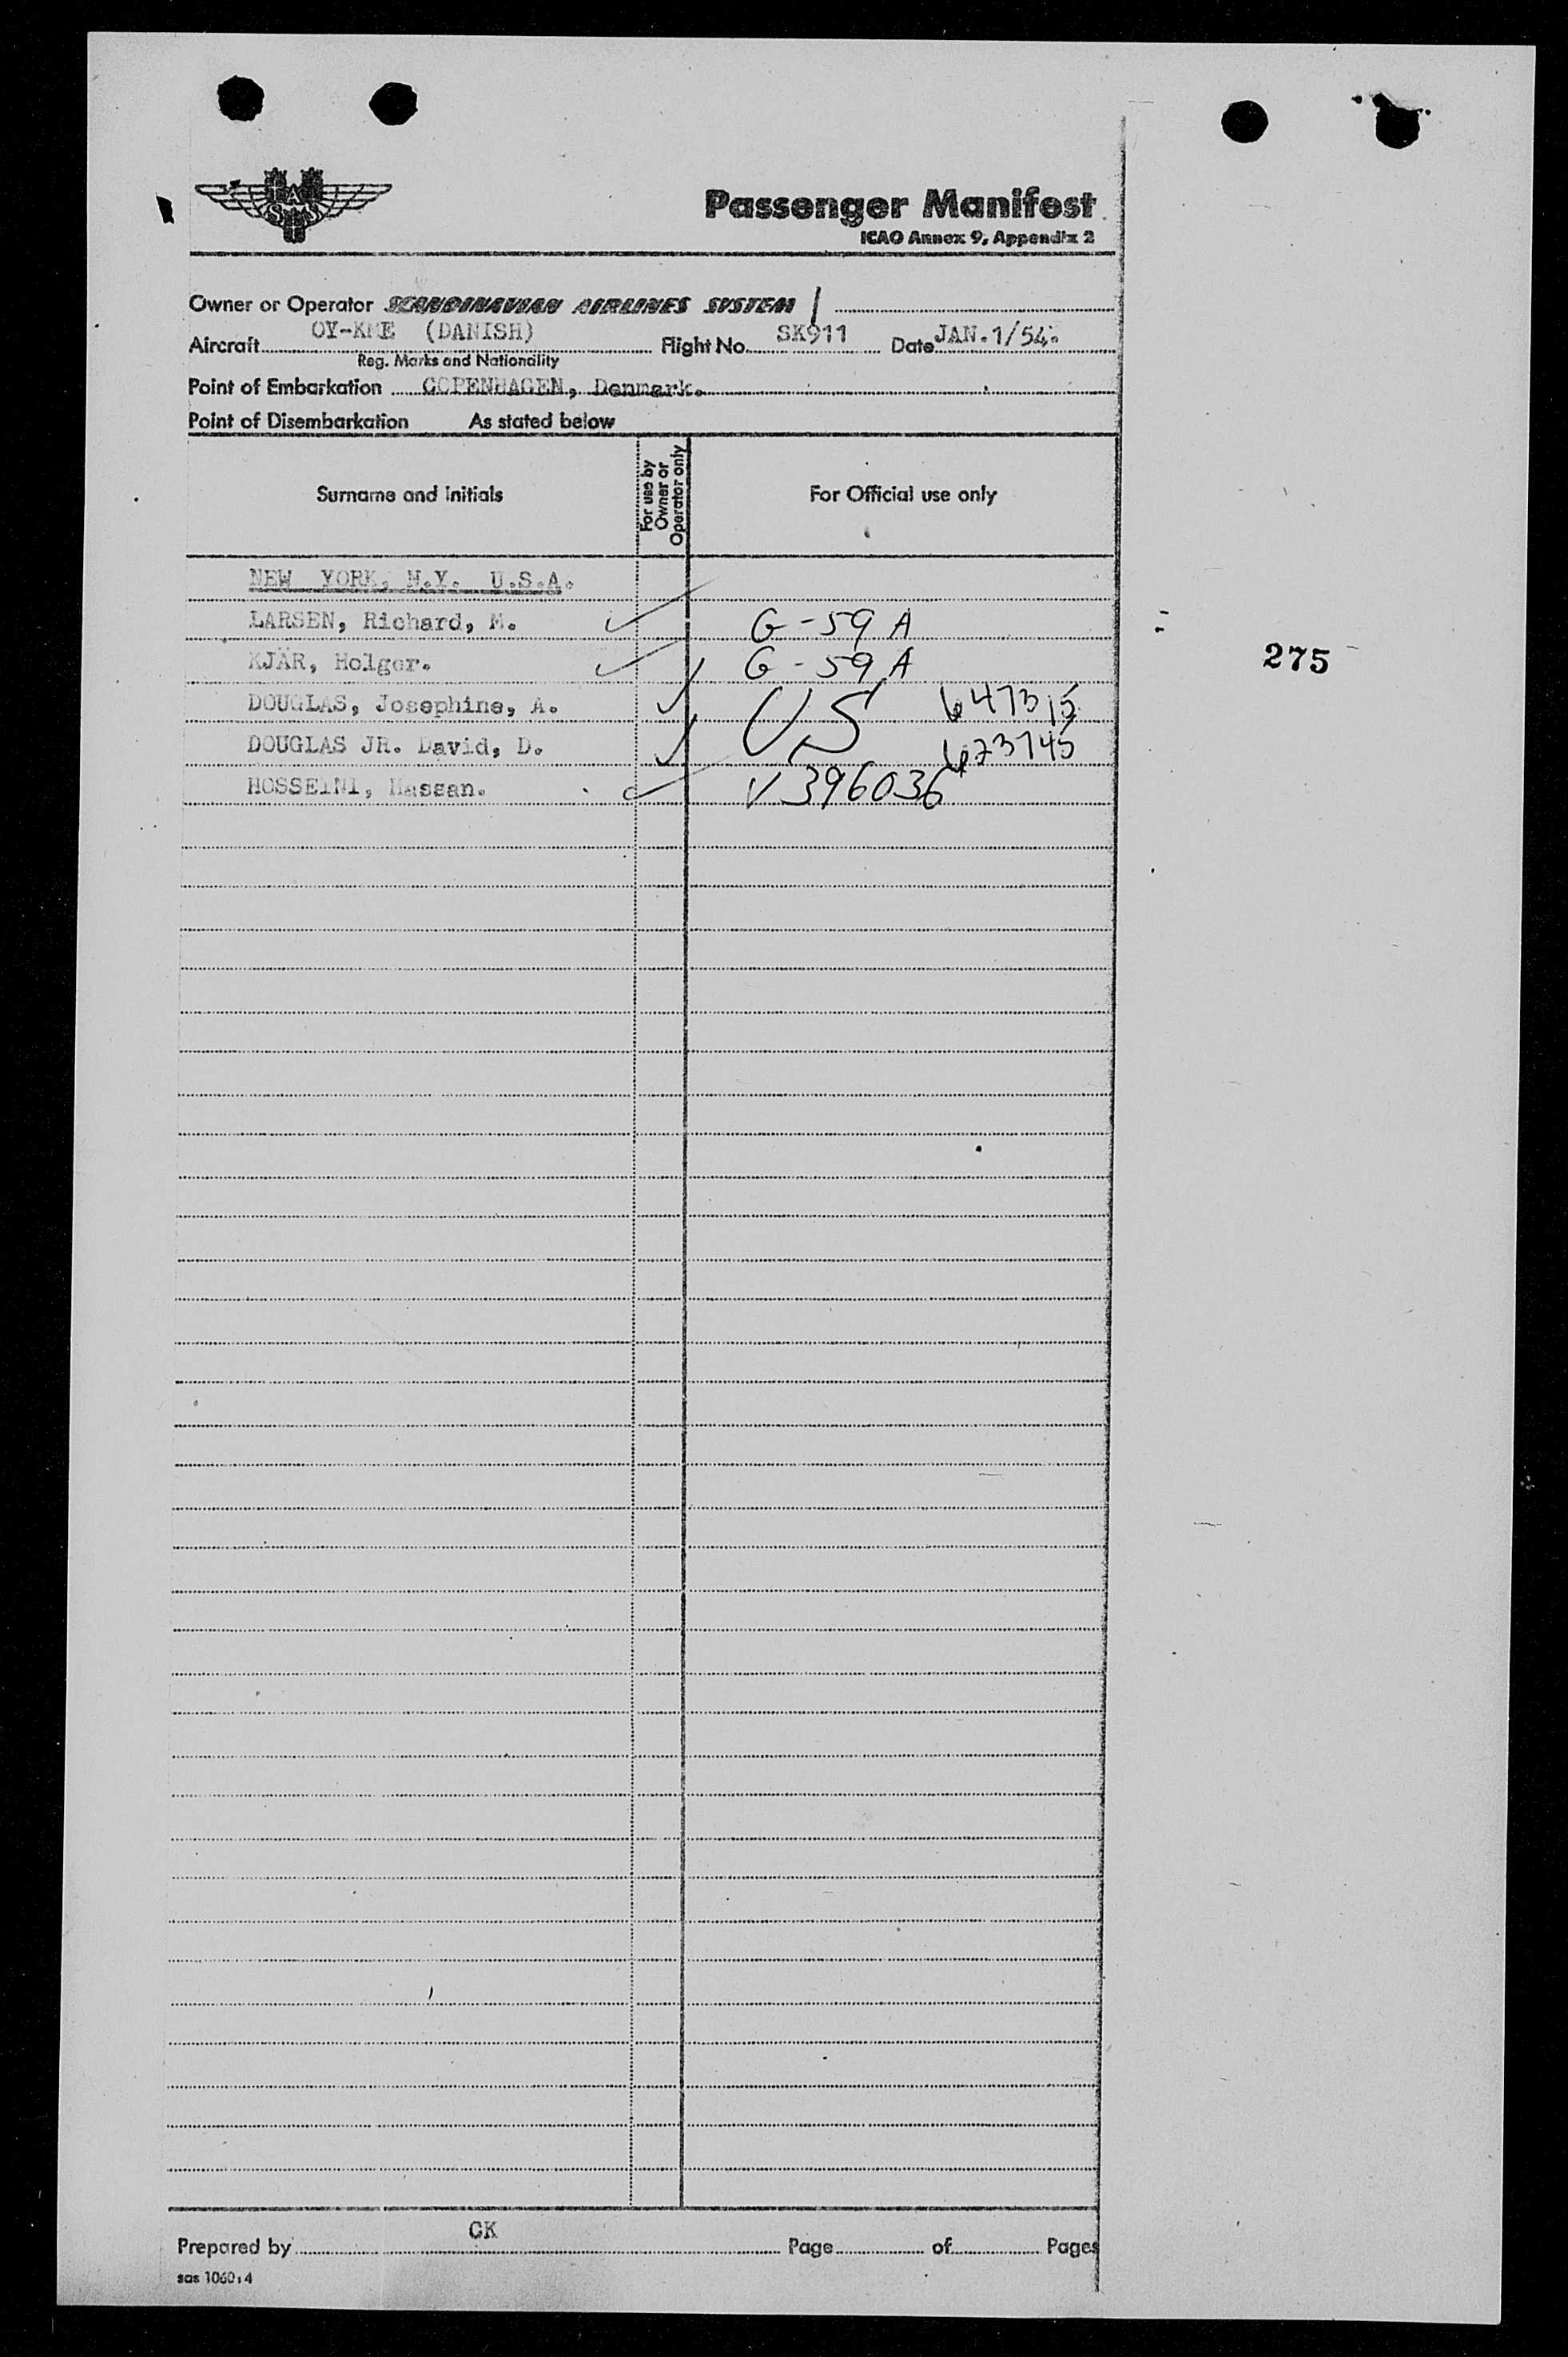 SAS
Passenger Manifest
ICAO Annex 9, Appendix 2
Owner or Operator SCANDINAVIAN AIRLINES SYSTEM
Aircraft OY-KME (DANISH) Flight No. SK911 Date JAN.1/54.
Reg. Marks and Nationality
Point of Embarkation COPENHAGEN, Denmark.
Point of Disembarkation As stated below
Surname and Initials For use by Owner or Operator only For Official use only
NEW YORK, N.Y. U.S.A.
LARSEN, Richard, M. G-59 A
KJÄR, Holger. G-59 A
275
DOUGLAS, Josephine, A. US 647315
DOUGLAS JR. David, D. 623745
HOSSEINI, Hassan. V 396036
Prepared by CK Page of Pages
sas 1060:4